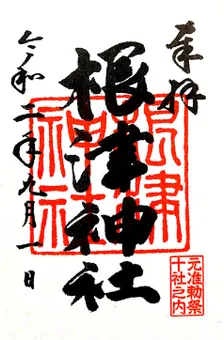 奉拝
根津神社
令和二年九月一日
根津神社
元准勅祭
十社之内